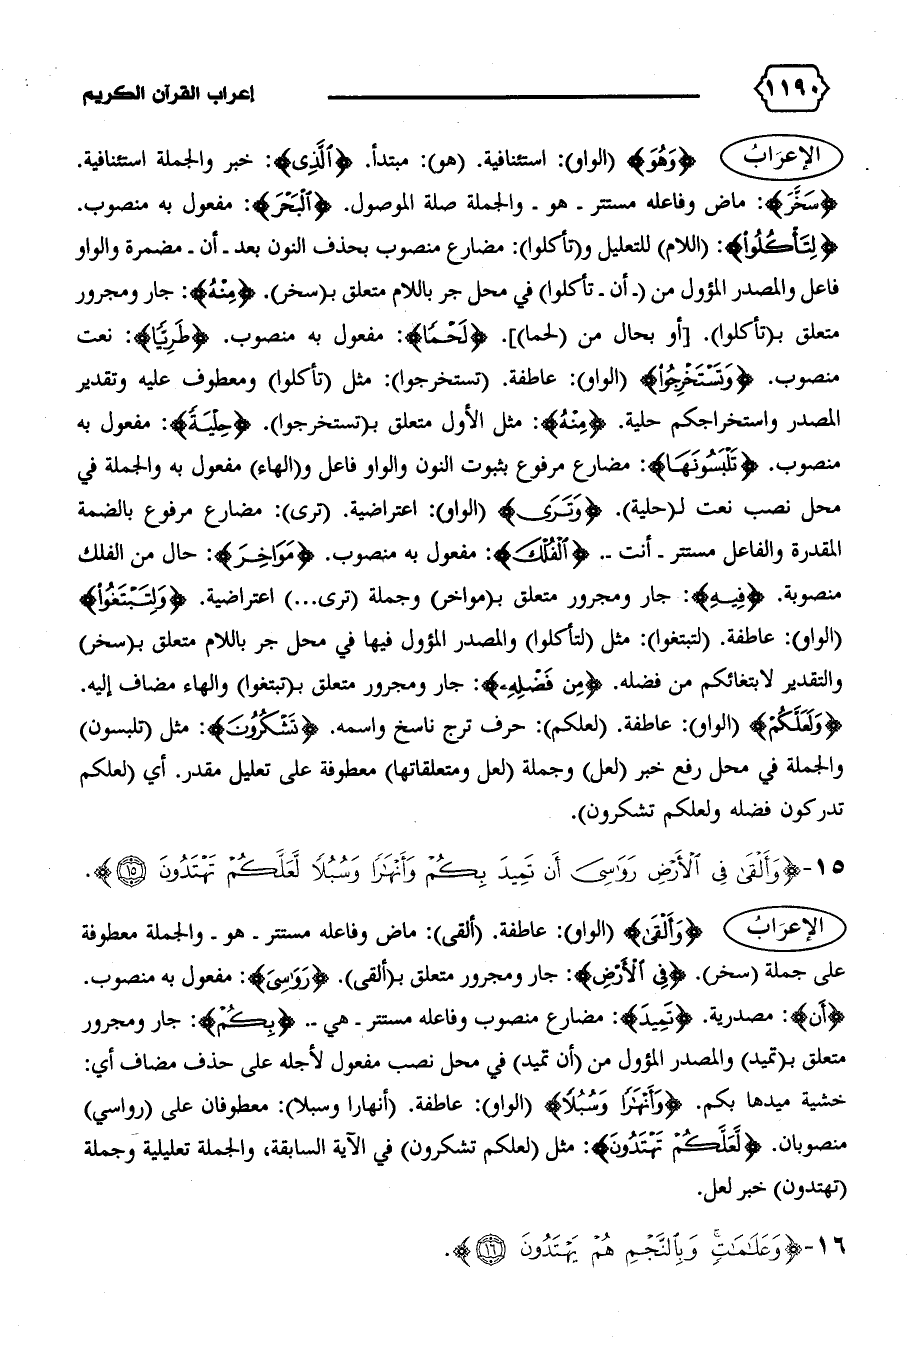 ١١٩٠ إعراب القرآن الكريم
الإعرَابُ ﴿وَهُوَ﴾ (الواو): استئنافية. (هو): مبتدأ. ﴿ٱلَّذِى﴾: خبر والجملة استئنافية.
﴿سَخَّرَ﴾: ماض وفاعله مستتر ـ هو ـ والجملة صلة الموصول. ﴿ٱلْبَحْرَ﴾: مفعول به منصوب.
﴿لِتَأْكُلُوا۟﴾: (اللام) للتعليل و(تأكلوا): مضارع منصوب بحذف النون بعد ـ أن ـ مضمرة والواو
فاعل والمصدر المؤول من (ـ أن ـ تأكلوا) في محل جر باللام متعلق بـ(سخر). ﴿مِنْهُ﴾: جار ومجرور
متعلق بـ(تأكلوا). [أو بحال من (لحما)]. ﴿لَحْمًا﴾: مفعول به منصوب. ﴿طَرِيًّا﴾: نعت
منصوب. ﴿وَتَسْتَخْرِجُوا۟﴾ (الواو): عاطفة. (تستخرجوا): مثل (تأكلوا) ومعطوف عليه وتقدير
المصدر واستخراجكم حلية. ﴿مِنْهُ﴾: مثل الأول متعلق بـ(تستخرجوا). ﴿حِلْيَةً﴾: مفعول به
منصوب. ﴿تَلْبَسُونَهَا﴾: مضارع مرفوع بثبوت النون والواو فاعل و(الهاء) مفعول به والجملة في
محل نصب نعت لـ(حلية). ﴿وَتَرَى﴾ (الواو): اعتراضية. (ترى): مضارع مرفوع بالضمة
المقدرة والفاعل مستتر ـ أنت ـ. ﴿ٱلْفُلْكَ﴾: مفعول به منصوب. ﴿مَوَاخِرَ﴾: حال من الفلك
منصوبة. ﴿فِيهِ﴾: جار ومجرور متعلق بـ(مواخر) وجملة (ترى...) اعتراضية. ﴿وَلِتَبْتَغُوا۟﴾
(الواو): عاطفة. (لتبتغوا): مثل (لتأكلوا) والمصدر المؤول فيها في محل جر باللام متعلق بـ(سخر)
والتقدير لابتغائكم من فضله. ﴿مِن فَضْلِهِۦ﴾: جار ومجرور متعلق بـ(تبتغوا) والهاء مضاف إليه.
﴿وَلَعَلَّكُمْ﴾ (الواو): عاطفة. (لعلكم): حرف ترج ناسخ واسمه. ﴿تَشْكُرُونَ﴾: مثل (تلبسون)
والجملة في محل رفع خبر (لعل) وجملة (لعل ومتعلقاتها) معطوفة على تعليل مقدر. أي (لعلكم
تدركون فضله ولعلكم تشكرون).
١٥-﴿وَأَلْقَىٰ فِى ٱلْأَرْضِ رَوَٰسِىَ أَن تَمِيدَ بِكُمْ وَأَنْهَٰرًا وَسُبُلًا لَّعَلَّكُمْ تَهْتَدُونَ ١٥﴾.
الإعرَابُ ﴿وَأَلْقَىٰ﴾ (الواو): عاطفة. (ألقى): ماض وفاعله مستتر ـ هو ـ والجملة معطوفة
على جملة (سخر). ﴿فِى ٱلْأَرْضِ﴾: جار ومجرور متعلق بـ(ألقى). ﴿رَوَٰسِىَ﴾: مفعول به منصوب.
﴿أَن﴾: مصدرية. ﴿تَمِيدَ﴾: مضارع منصوب وفاعله مستتر ـ هي ـ. ﴿بِكُمْ﴾: جار ومجرور
متعلق بـ(تميد) والمصدر المؤول من (أن تميد) في محل نصب مفعول لأجله على حذف مضاف أي:
خشية ميدها بكم. ﴿وَأَنْهَٰرًا وَسُبُلًا﴾ (الواو): عاطفة. (أنهارا وسبلا): معطوفان على (رواسي)
منصوبان. ﴿لَّعَلَّكُمْ تَهْتَدُونَ﴾: مثل (لعلكم تشكرون) في الآية السابقة، والجملة تعليلية وجملة
(تهتدون) خبر لعل.
١٦-﴿وَعَلَٰمَٰتٍ ۚ وَبِٱلنَّجْمِ هُمْ يَهْتَدُونَ ١٦﴾.